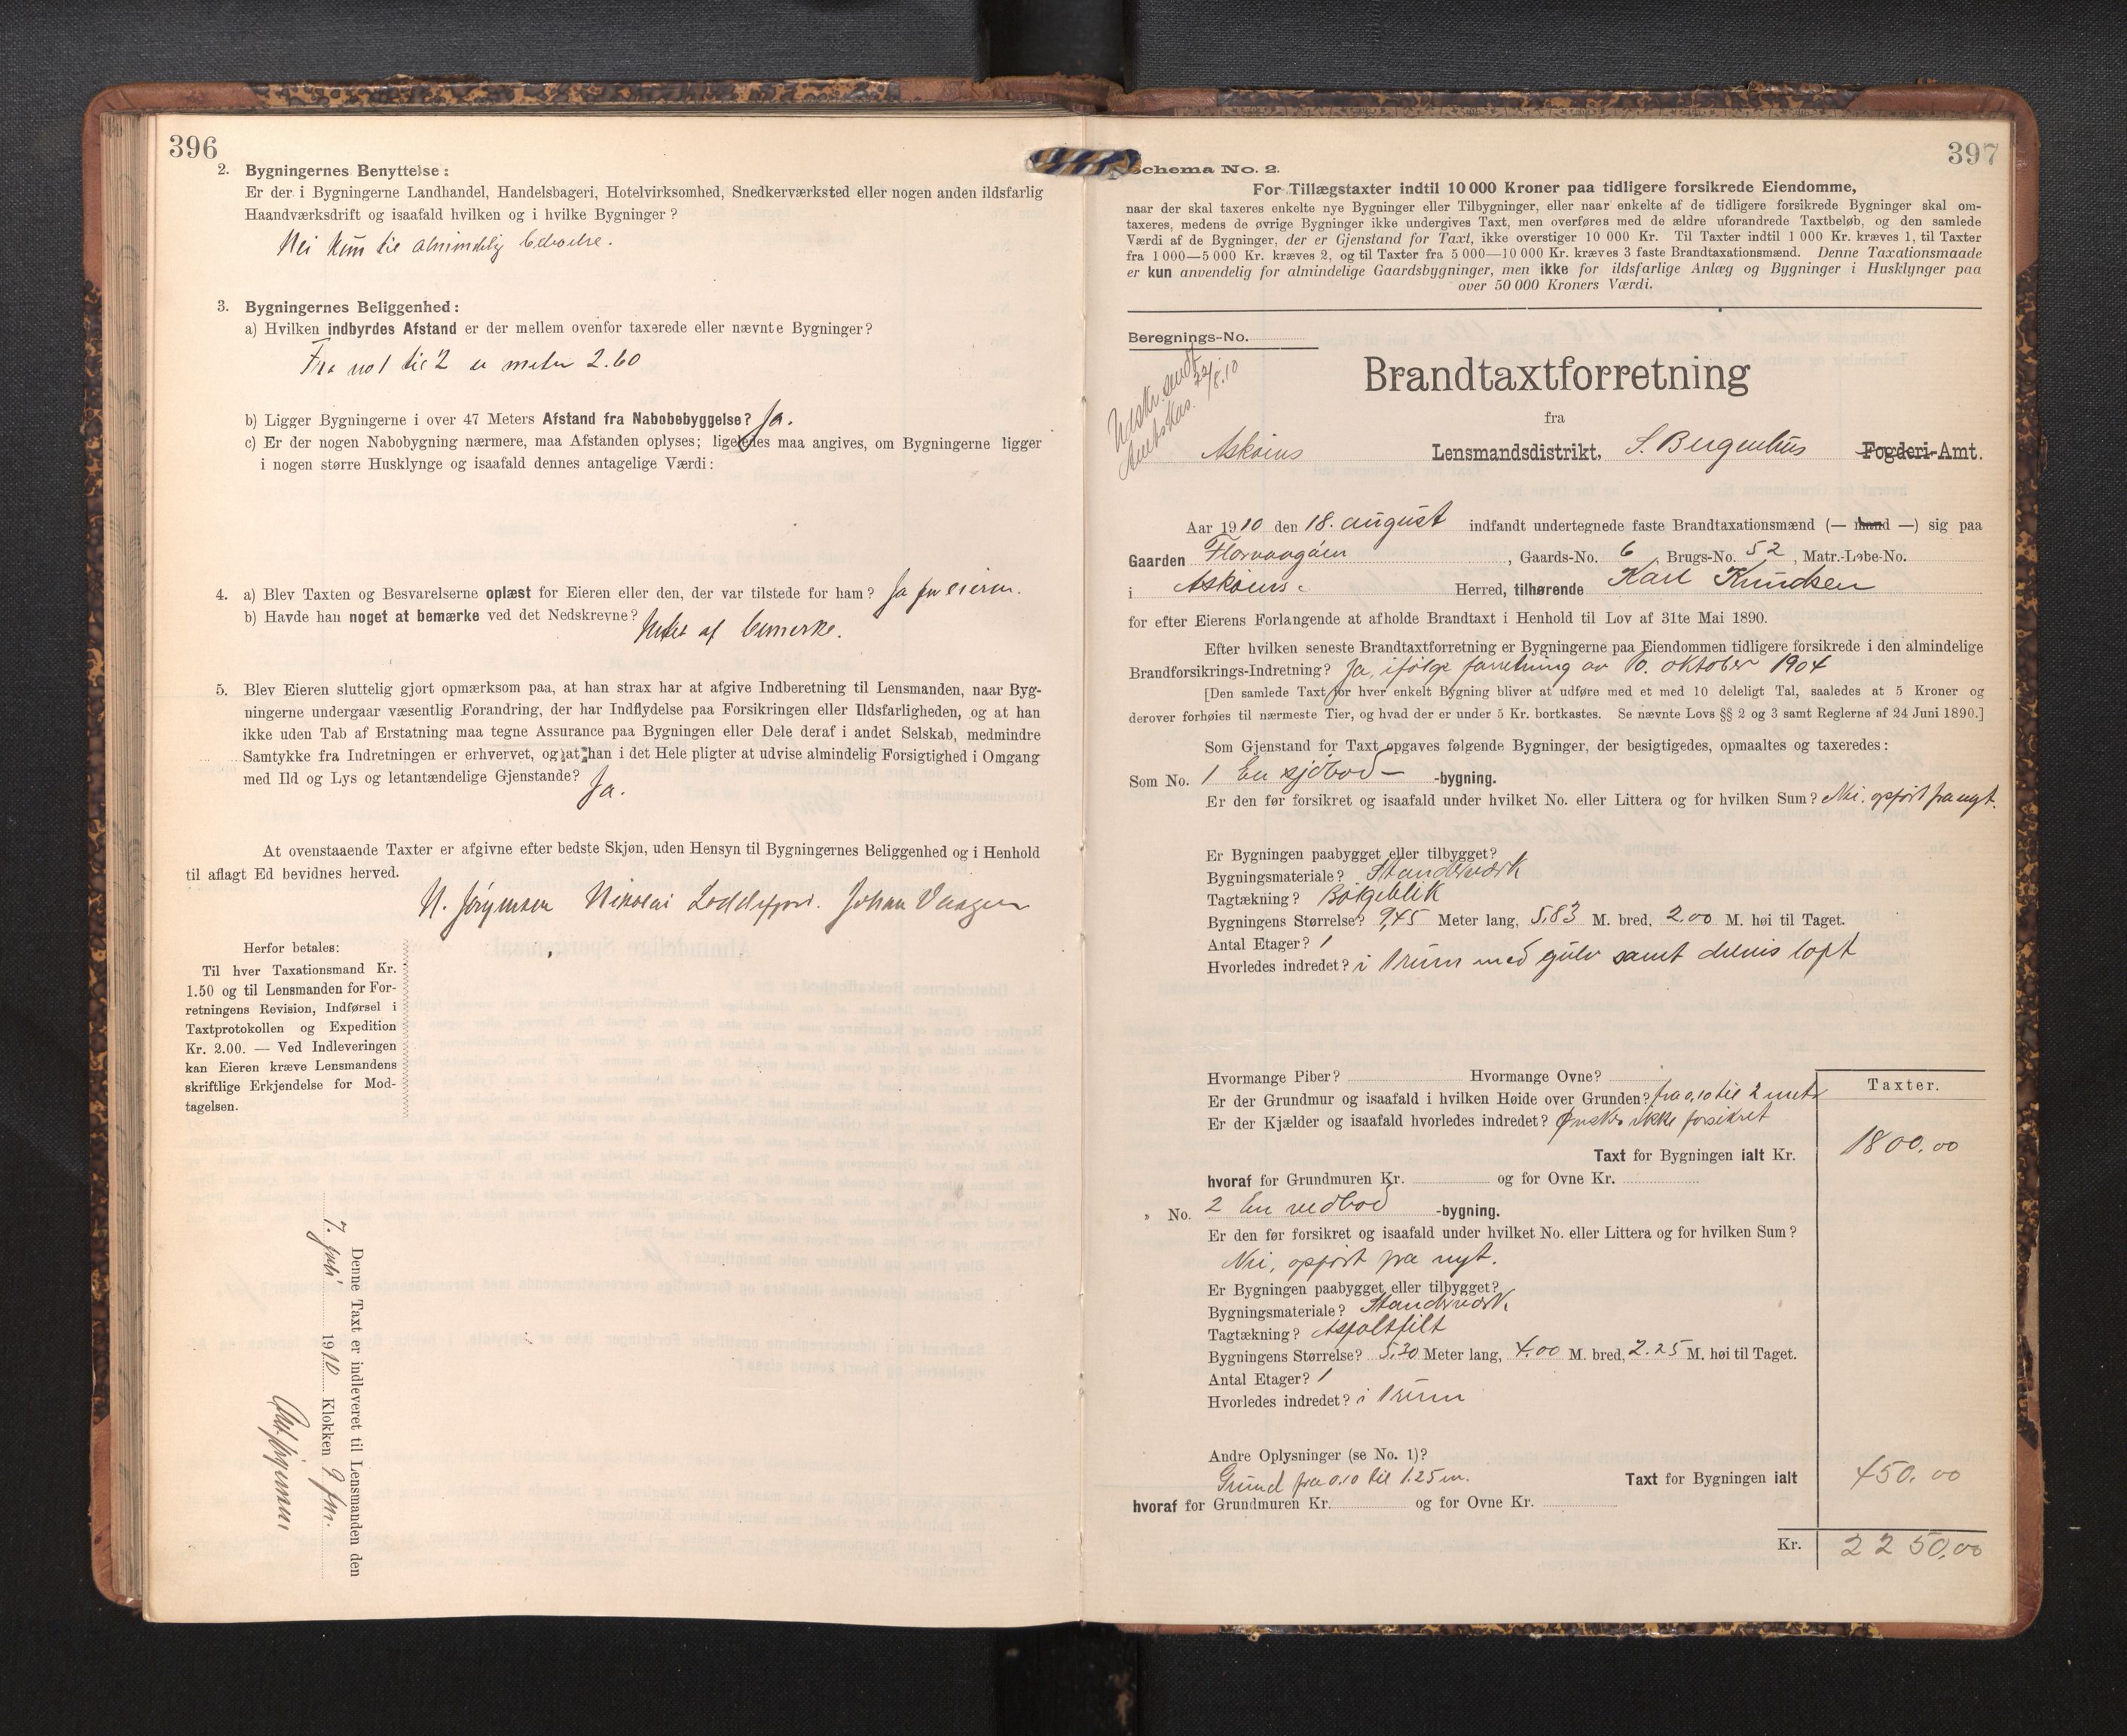 396
2. Bygningernes Benyttelse:
Er der i Bygningerne Landhandel, Handelsbageri, Hotelvirksomhed, Snedkerværksted eller nogen anden ildsfarlig
Haandværksdrift og isaafald hvilken og i hvilke Bygninger?
Nei kun til almindelig beboelse.
3. Bygningernes Beliggenhed:
a) Hvilken indbyrdes Afstand er der mellem ovenfor taxerede eller nævnte Bygninger?
Fra no 1 til 2 er meter 2.60
b) Ligger Bygningerne i over 47 Meters Afstand fra Nabobebyggelse? Ja.
c) Er der nogen Nabobygning nærmere, maa Afstanden oplyses; ligeledes maa angives, om Bygningerne ligger
i nogen større Husklynge og isaafald dennes antagelige Værdi:
4. a) Blev Taxten og Besvarelserne oplæst for Eieren eller den, der var tilstede for ham? Ja for eieren.
b) Havde han noget at bemærke ved det Nedskrevne?
Intet at bemerke.
5. Blev Eieren sluttelig gjort opmærksom paa, at han strax har at afgive Indberetning til Lensmanden, naar Byg-
ningerne undergaar væsentlig Forandring, der har Indflydelse paa Forsikringen eller Ildsfarligheden, og at han
ikke uden Tab af Erstatning maa tegne Assurance paa Bygningen eller Dele deraf i andet Selskab, medmindre
Samtykke fra Indretningen er erhvervet, og at han i det Hele pligter at udvise almindelig Forsigtighed i Omgang
med Ild og Lys og letantændelige Gjenstande?
Ja.
At ovenstaaende Taxter er afgivne efter bedste Skjøn, uden Hensyn til Bygningernes Beliggenhed og i Henhold
til aflagt Ed bevidnes herved.
N. Jörgensen Nikolai Loddefjord. Johan Vaagen
Herfor betales:
Til hver Taxationsmand Kr.
1.50 og til Lensmanden for For-
retningens Revision, Indførsel i
Taxtprotokollen og Expedition
Kr. 2.00. — Ved Indleveringen
kan Eieren kræve Lensmandens
skriftlige Erkjendelse for Mod-
tagelsen.
Denne Taxt er indleveret til Lensmanden den
7. juli 1910 Klokken 9 fm.
397
Schema No. 2.
For Tillægstaxter indtil 10 000 Kroner paa tidligere forsikrede Eiendomme,
naar der skal taxeres enkelte nye Bygninger eller Tilbygninger, eller naar enkelte af de tidligere forsikrede Bygninger skal om-
taxeres, medens de øvrige Bygninger ikke undergives Taxt, men overføres med de ældre uforandrede Taxtbeløb, og den samlede
Værdi af de Bygninger, der er Gjenstand for Taxt, ikke overstiger 10 000 Kr. Til Taxter indtil 1 000 Kr. kræves 1, til Taxter
fra 1 000—5 000 Kr. kræves 2, og til Taxter fra 5 000—10 000 Kr. kræves 3 faste Brandtaxationsmænd. Denne Taxationsmaade
er kun anvendelig for almindelige Gaardsbygninger, men ikke for ildsfarlige Anlæg og Bygninger i Husklynger paa
over 50 000 Kroners Værdi.
Beregnings-No.
Udskr. sendt
Amtskas. 22/8.10
Brandtaxtforretning
fra
Askøins Lensmandsdistrikt, S. Bergenhus Fogderi-Amt.
Aar 1910 den 18. august indfandt undertegnede faste Brandtaxationsmænd (— mand —) sig paa
Gaarden Florvaagöen, Gaards-No. 6, Brugs-No. 52, Matr.-Løbe-No.
i Askøins Herred, tilhørende Karl Knudsen
for efter Eierens Forlangende at afholde Brandtaxt i Henhold til Lov af 31te Mai 1890.
Efter hvilken seneste Brandtaxtforretning er Bygningerne paa Eiendommen tidligere forsikrede i den almindelige
Brandforsikrings-Indretning? Ja, ifølge forretning av 10. oktober 1904
[Den samlede Taxt for hver enkelt Bygning bliver at udføre med et med 10 deleligt Tal, saaledes at 5 Kroner og
derover forhøies til nærmeste Tier, og hvad der er under 5 Kr. bortkastes. Se nævnte Lovs §§ 2 og 3 samt Reglerne af 24 Juni 1890.]
Som Gjenstand for Taxt opgaves følgende Bygninger, der besigtigedes, opmaaltes og taxeredes:
Som No. 1 En sjöbod -bygning.
Er den før forsikret og isaafald under hvilket No. eller Littera og for hvilken Sum? Nei. opfört fra nyt.
Er Bygningen paabygget eller tilbygget?
Bygningsmateriale? Standerværk
Tagtækning? Bølgeblik
Bygningens Størrelse? 9,45 Meter lang, 5.83 M. bred, 2.00 M. høi til Taget.
Antal Etager? 1
Hvorledes indredet? i 1 rum med gulv samt delvis loft
Hvormange Piber? Hvormange Ovne?
Er der Grundmur og isaafald i hvilken Høide over Grunden? fra 0,10 til 2 mets
Er der Kjælder og isaafald hvorledes indredet? Ønskes ikke forsikret
Taxter.
Taxt for Bygningen ialt Kr. 1800.00
hvoraf for Grundmuren Kr. og for Ovne Kr.
" No. 2 En vedbod -bygning.
Er den før forsikret og isaafald under hvilket No. eller Littera og for hvilken Sum?
Nei, opfört fra nyt.
Er Bygningen paabygget eller tilbygget?
Bygningsmateriale? Standerværk
Tagtækning? Asfaltfilt
Bygningens Størrelse? 5.30 Meter lang, 4.00 M. bred, 2.25 M. høi til Taget.
Antal Etager? 1
Hvorledes indredet? i 1 rum
Andre Oplysninger (se No. 1)?
Grund fra 0.10 til 1.25 m. Taxt for Bygningen ialt 450.00
hvoraf for Grundmuren Kr. og for Ovne Kr.
Kr. 2250.00